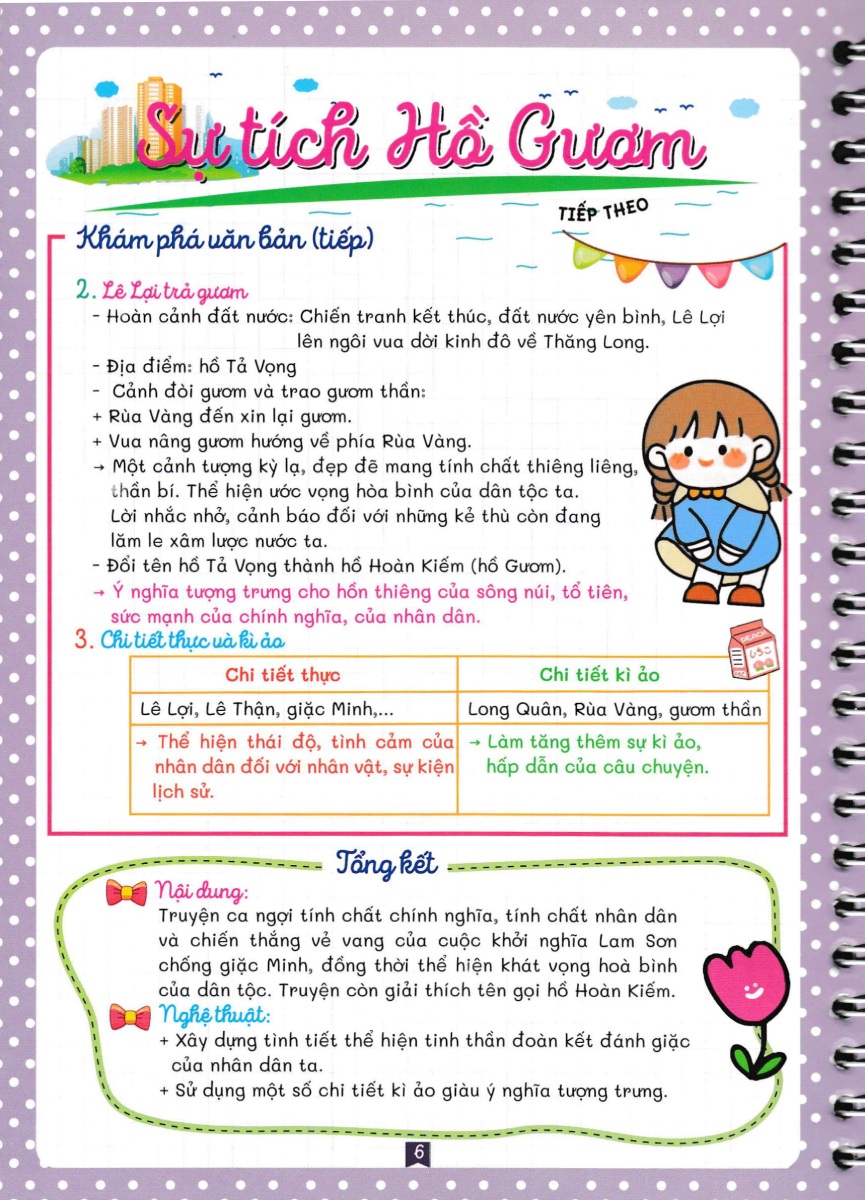 Sự tích Hồ Gươm
TIẾP THEO
Khám phá văn bản (tiếp)
2. Lê Lợi trả gươm
- Hoàn cảnh đất nước: Chiến tranh kết thúc, đất nước yên bình, Lê Lợi
lên ngôi vua dời kinh đô về Thăng Long.
- Địa điểm: hồ Tả Vọng
- Cảnh đòi gươm và trao gươm thần:
+ Rùa Vàng đến xin lại gươm.
+ Vua nâng gươm hướng về phía Rùa Vàng.
→ Một cảnh tượng kỳ lạ, đẹp đẽ mang tính chất thiêng liêng,
thần bí. Thể hiện ước vọng hòa bình của dân tộc ta.
Lời nhắc nhở, cảnh báo đối với những kẻ thù còn đang
lăm le xâm lược nước ta.
- Đổi tên hồ Tả Vọng thành hồ Hoàn Kiếm (hồ Gươm).
→ Ý nghĩa tượng trưng cho hồn thiêng của sông núi, tổ tiên,
sức mạnh của chính nghĩa, của nhân dân.
3. Chi tiết thực và kì ảo
PEACH
いちご
Chi tiết thực
Chi tiết kì ảo
Lê Lợi, Lê Thận, giặc Minh,...
Long Quân, Rùa Vàng, gươm thần
→ Thể hiện thái độ, tình cảm của
nhân dân đối với nhân vật, sự kiện
lịch sử.
→ Làm tăng thêm sự kì ảo,
hấp dẫn của câu chuyện.
Tổng kết
Nội dung:
Truyện ca ngợi tính chất chính nghĩa, tính chất nhân dân
và chiến thắng vẻ vang của cuộc khởi nghĩa Lam Sơn
chống giặc Minh, đồng thời thể hiện khát vọng hoà bình
của dân tộc. Truyện còn giải thích tên gọi hồ Hoàn Kiếm.
Nghệ thuật:
+ Xây dựng tình tiết thể hiện tinh thần đoàn kết đánh giặc
của nhân dân ta.
+ Sử dụng một số chi tiết kì ảo giàu ý nghĩa tượng trưng.
6